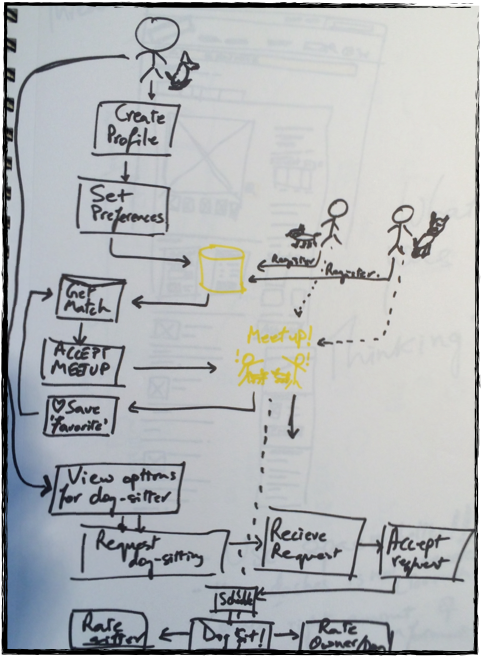 Create
Profile
Set
Preferences
Register
Register
Get
Match
Meetup!
ACCEPT
MEETUP
! !
♡Save
'favorite'
View options
for dog-sitter
Request
dog-sitting
Recieve
Request
Accept
request
Rate
sitter
Dog sit!
Rate
Thinking